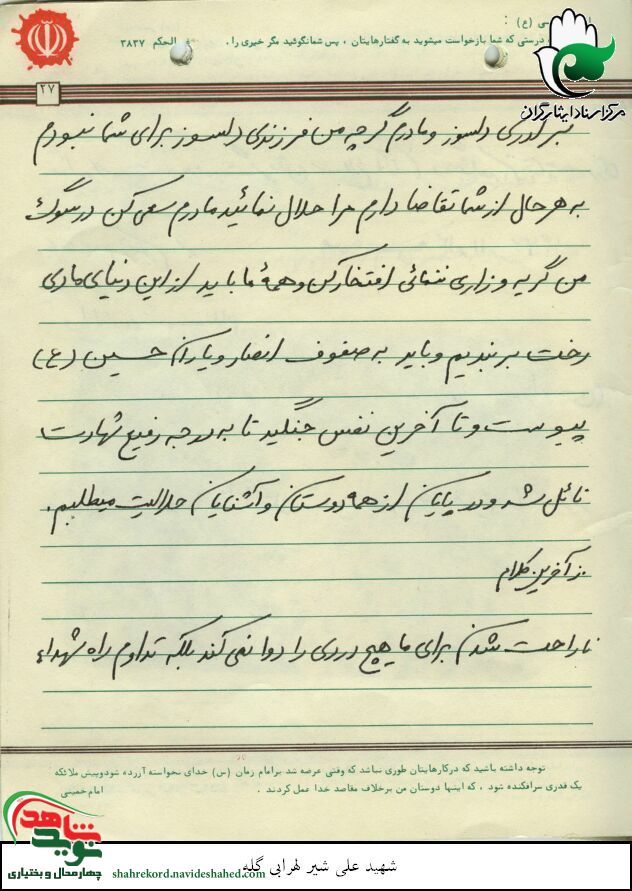 سی (ع) :
درستی که شما بازخواست میشوید به گفتارهایتان ، پس شما نگوئید مگر خیری را . الحکم ۳۸۳۷
مرکز اسناد ایثارگران
۲۷
دلسوز و مادرم گرچه من فرزندی دلسوز برای شما نبودم
به هر حال از شما تقاضا دارم مرا حلال نمائید مادرم سعی کن در سوگ
من گریه و زاری ننمائی افتخار کن و همهٔ ما باید از این دنیای مادی
رخت بر بندیم و باید به صفوف انصار و یاران حسین (ع)
پیوست و تا آخرین نفس جنگید تا به درجه رفیع شهادت
نائل شد و در پایان از همه دوستان و آشنایان حلالیت میطلبم.
آخرین کلام
ناراحت شدن برای ما هیچ دردی را دوا نمی کند بلکه تداوم راه شهداء
توجه داشته باشید که در کارهایتان طوری نباشد که وقتی عرضه شد برامام زمان (س) خدای نخواسته آزرده شود و پیش ملائکه
یک قدری سرافکنده شود ، که اینها دوستان من برخلاف مقاصد خدا عمل کردند . امام خمینی
نوید شاهد
چهارمحال و بختیاری
shahrekord.navideshahed.com
شهید علی شیر لهرابی گله